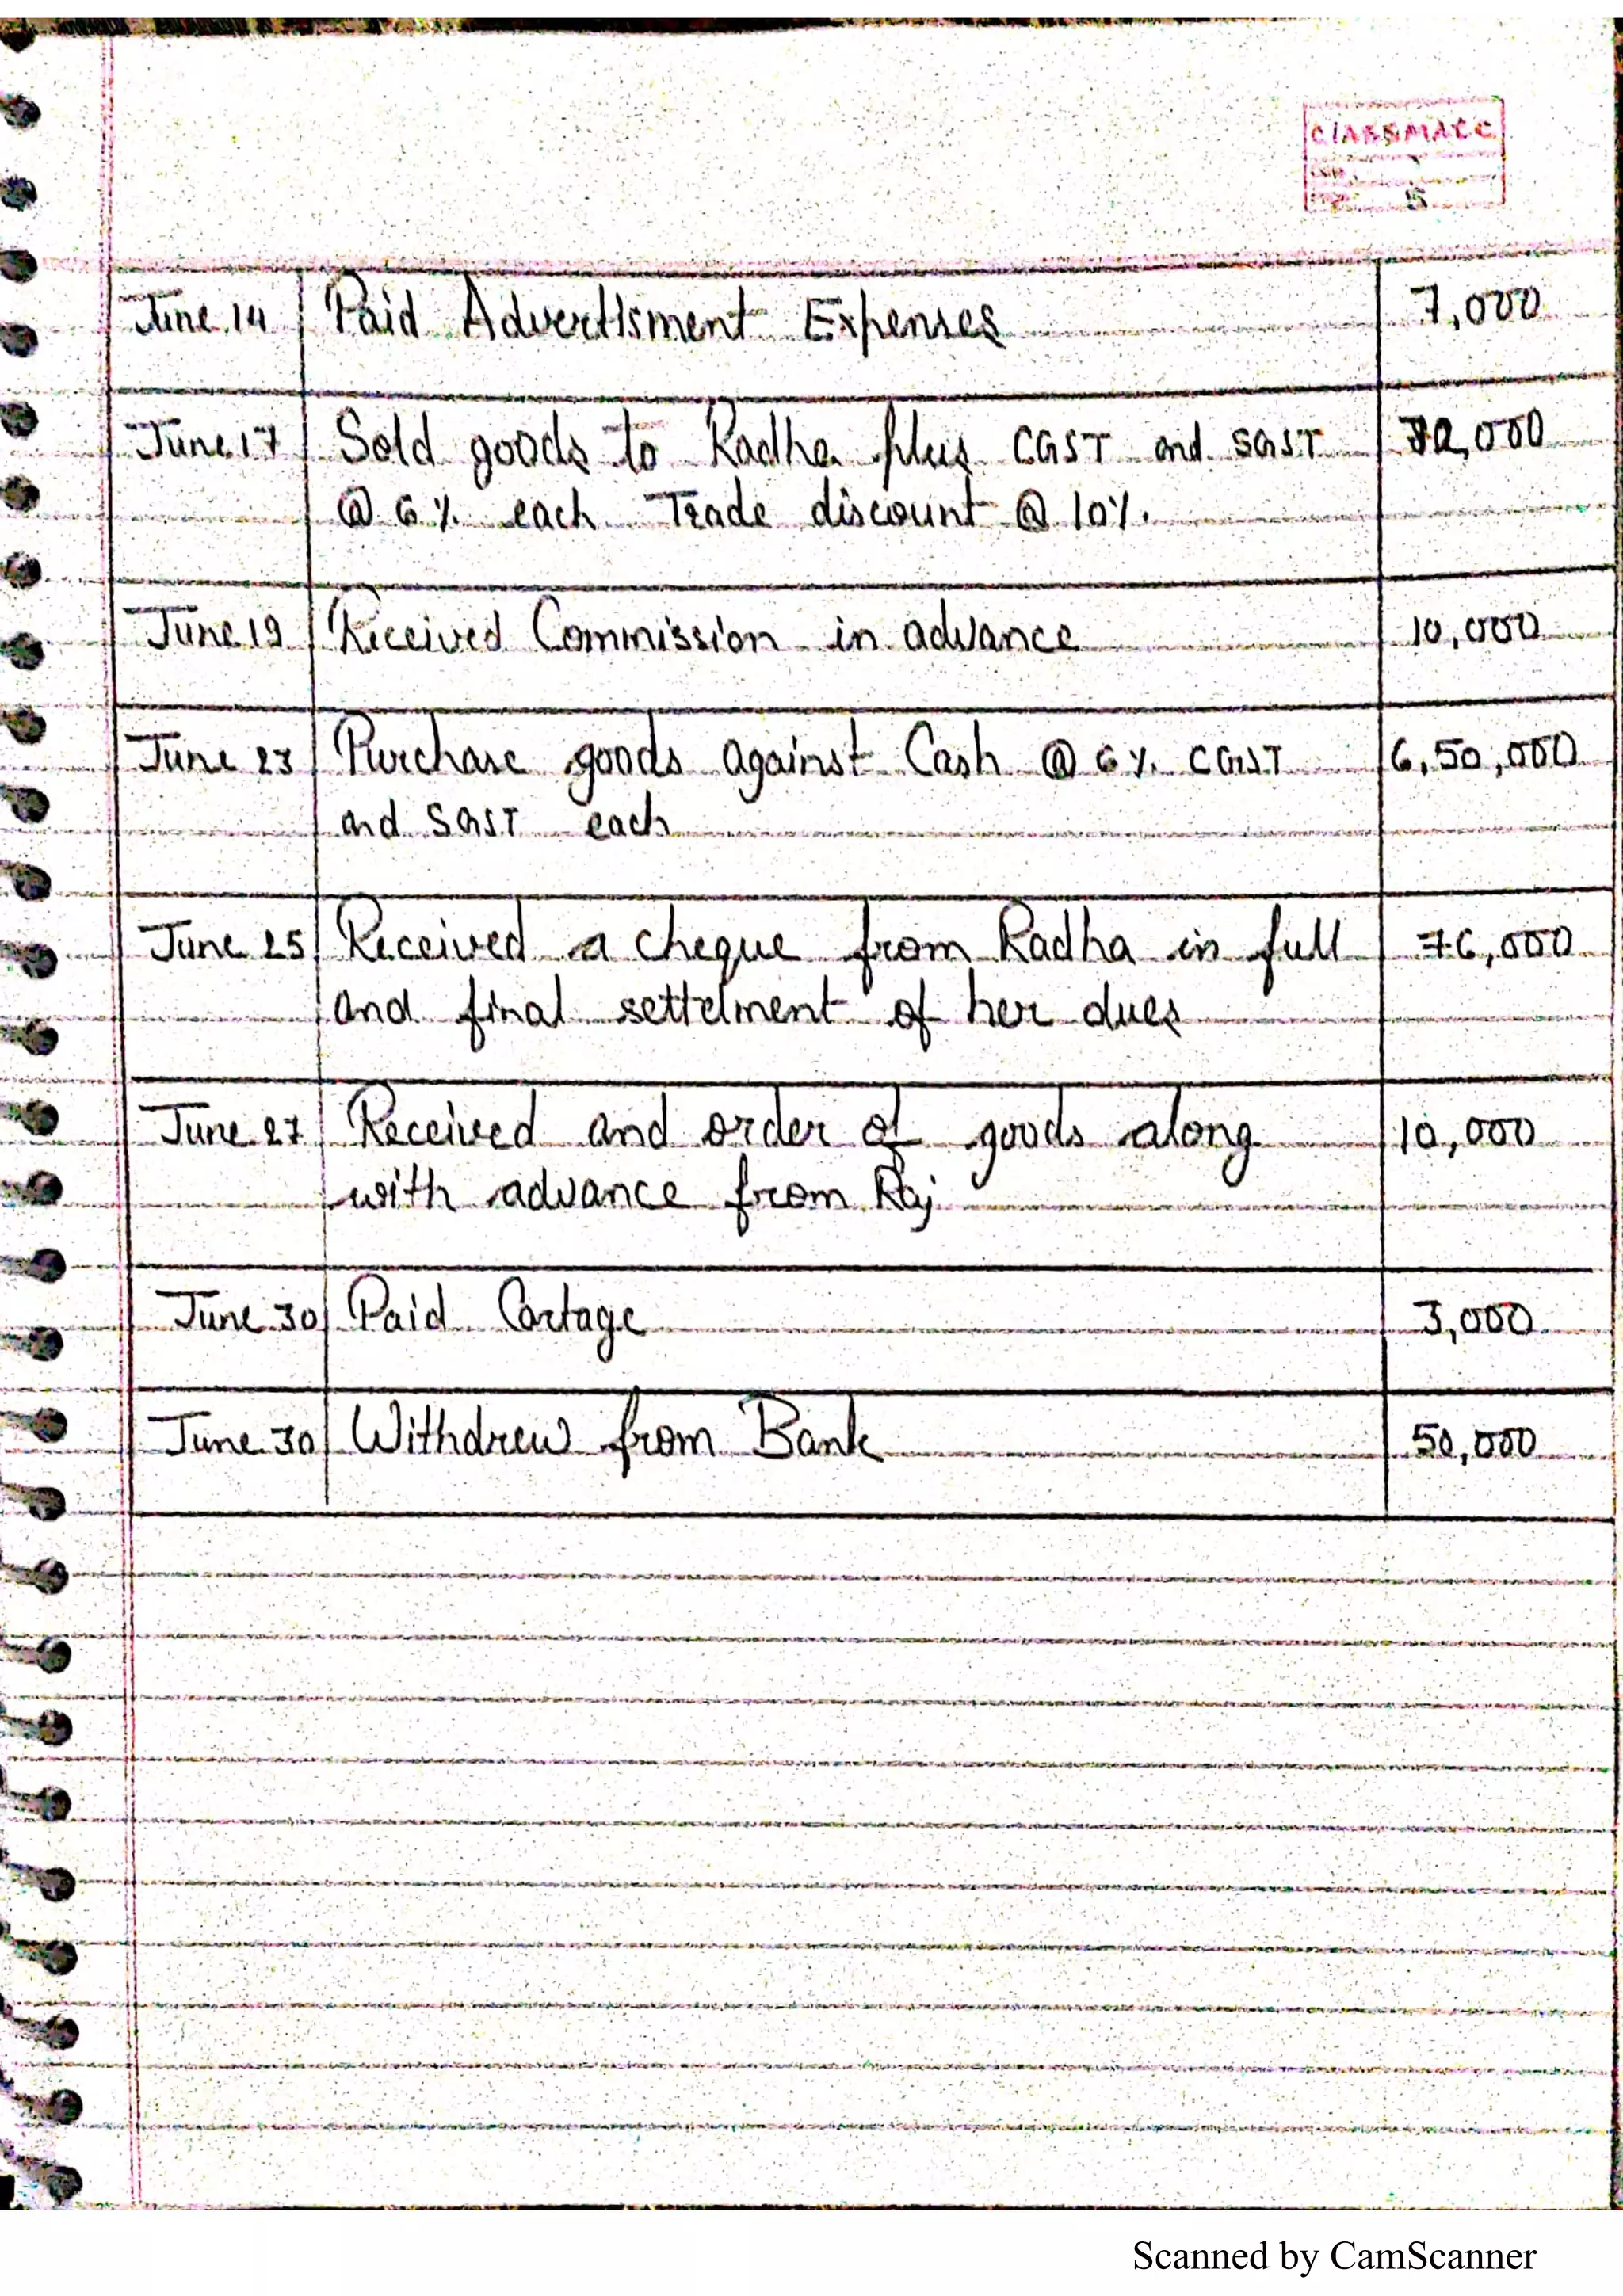 classmate
June 14 Paid Advertisment Expenses 7,000
June 17 Sold goods to Radha plus CGST and SGST
@ 6% each Trade discount @ 10%.
June 19 Received Commission in advance 10,000
June 23 Purchase goods against Cash @ 6% CGST 6,50,000
and SGST each
June 25 Received a cheque from Radha in full 76,000
and final settelment of her dues
June 27 Received and order of goods along 10,000
with advance from Raj
June 30 Paid Cartage 3,000
June 30 Withdrew from Bank 50,000
Scanned by CamScanner